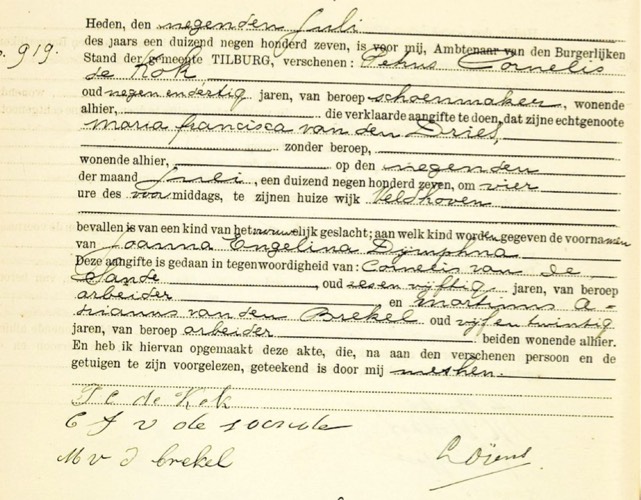 Heden, den negenden Juli
des jaars een duizend negen honderd zeven, is voor mij, Ambtenaar van den Burgerlijken
o. 919. Stand der gemeente TILBURG, verschenen: Petrus Cornelis
de Kok,
oud negen en dertig jaren, van beroep schoenmaker, wonende
alhier, die verklaarde aangifte te doen, dat zijne echtgenoote
Maria Francisca van den Dries,
zonder beroep,
wonende alhier, op den negenden
der maand Juli, een duizend negen honderd zeven, om vier
ure des voormiddags, te zijnen huize wijk Veldhoven
bevallen is van een kind van het vrouwelijk geslacht; aan welk kind worden gegeven de voornamen
van Joanna Engelina Dijmphna
Deze aangifte is gedaan in tegenwoordigheid van: Cornelis van de
Sande, oud zes en vijftig jaren, van beroep
arbeider en Martinus A-
drianus van den Brekel oud vijf en twintig
jaren, van beroep arbeider beiden wonende alhier.
En heb ik hiervan opgemaakt deze akte, die, na aan den verschenen persoon en de
getuigen te zijn voorgelezen, geteekend is door mij met hen.
P C de Kok
C J v de
M v d brekel